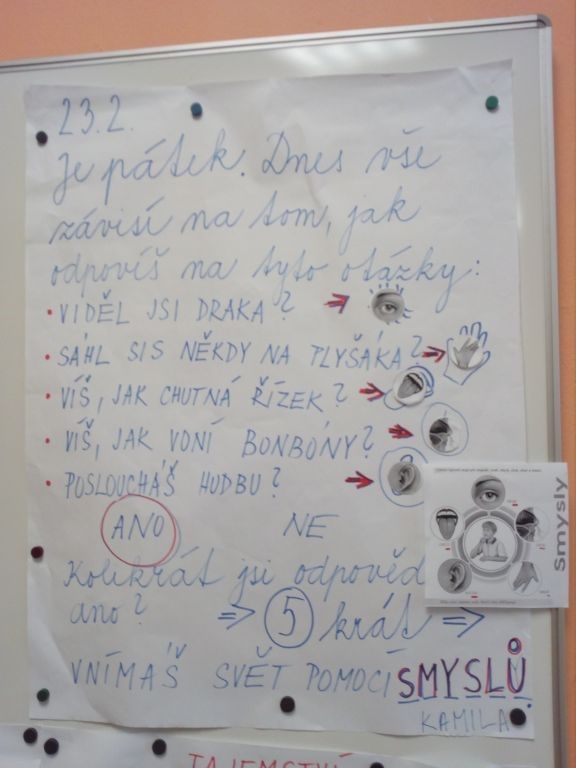 23.2.
Je pátek. Dnes vše
závisí na tom, jak
odpovíš na tyto otázky:
• VIDĚL JSI DRAKA?
• SÁHL SIS NĚKDY NA PLYŠÁKA?
• VÍŠ, JAK CHUTNÁ ŘÍZEK?
• VÍŠ, JAK VONÍ BONBÓNY?
• POSLOUCHÁŠ HUDBU?
ANO NE
Kolikrát jsi odpověd
ano? ⇒ 5 krát ⇒
VNÍMÁŠ SVĚT POMOCÍ SMYSLŮ
KAMILA
smysly
TAJEMSTVÍ